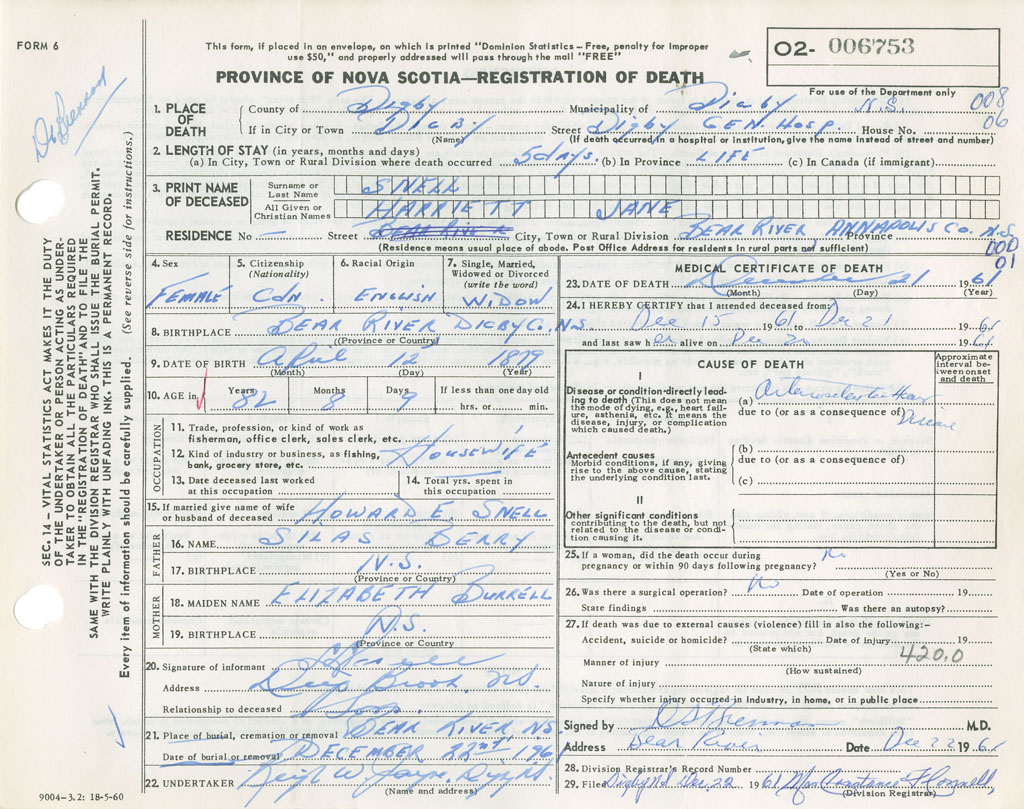 FORM 6
This form, if placed in an envelope, on which is printed "Dominion Statistics – Free, penalty for improper
use $50," and properly addressed will pass through the mail "FREE"
O2- 006753
PROVINCE OF NOVA SCOTIA—REGISTRATION OF DEATH
For use of the Department only
Dr Brennan
SEC. 14 – VITAL STATISTICS ACT MAKES IT THE DUTY
OF THE UNDERTAKER OR PERSON ACTING AS UNDER-
TAKER TO OBTAIN ALL THE PARTICULARS REQUIRED
IN THE "REGISTRATION OF DEATH" AND TO FILE THE
SAME WITH THE DIVISION REGISTRAR WHO SHALL ISSUE THE BURIAL PERMIT.
WRITE PLAINLY WITH UNFADING INK. THIS IS A PERMANENT RECORD.
Every item of information should be carefully supplied. (See reverse side for instructions.)
1. PLACE OF DEATH
County of Digby Municipality of Digby N.S. 008
If in City or Town DIGBY Street Digby GEN. HOSP. House No. 06
(Name) (If death occurred in a hospital or institution, give the name instead of street and number)
2. LENGTH OF STAY (in years, months and days)
(a) In City, Town or Rural Division where death occurred 5 days. (b) In Province LIFE (c) In Canada (if immigrant)
3. PRINT NAME OF DECEASED
Surname or Last Name SNELL
All Given or Christian Names HARRIETT JANE
RESIDENCE No – Street BEAR RIVER City, Town or Rural Division BEAR RIVER ANNAPOLIS Co. Province N.S.
(Residence means usual place of abode. Post Office Address for residents in rural parts not sufficient)
000
01
4. Sex FEMALE
5. Citizenship (Nationality) Cdn.
6. Racial Origin ENGLISH
7. Single, Married, Widowed or Divorced (write the word) WIDOW
8. BIRTHPLACE BEAR RIVER DIGBY Co. N.S.
(Province or Country)
9. DATE OF BIRTH April 12 1879
(Month) (Day) (Year)
10. AGE in Years 82 Months 8 Days 9 If less than one day old
hrs. or min.
OCCUPATION
11. Trade, profession, or kind of work as
fisherman, office clerk, sales clerk, etc.
12. Kind of industry or business, as fishing,
bank, grocery store, etc. HOUSEWIFE
13. Date deceased last worked
at this occupation
14. Total yrs. spent in
this occupation
15. If married give name of wife
or husband of deceased HOWARD E. SNELL
FATHER
16. NAME SILAS BERRY
17. BIRTHPLACE N.S.
(Province or Country)
MOTHER
18. MAIDEN NAME ELIZABETH BURRELL
19. BIRTHPLACE N.S.
(Province or Country
20. Signature of informant
Address Deep Brook, N.S.
Relationship to deceased Son
21. Place of burial, cremation or removal BEAR RIVER, N.S.
Date of burial or removal DECEMBER 22nd, 196
22. UNDERTAKER
(Name and address)
9004–3.2: 18-5-60
MEDICAL CERTIFICATE OF DEATH
23. DATE OF DEATH December 21 1961
(Month) (Day) (Year)
24. I HEREBY CERTIFY that I attended deceased from:
Dec 15 1961 to Dec 21 1961
and last saw her alive on Dec 20 1961
CAUSE OF DEATH
Approximate interval between onset and death
I
Disease or condition directly lead-
ing to death (This does not mean
the mode of dying, e.g., heart fail-
ure, asthenia, etc. It means the
disease, injury, or complication
which caused death.)
(a)
due to (or as a consequence of)
Antecedent causes
Morbid conditions, if any, giving
rise to the above cause, stating
the underlying condition last.
(b)
due to (or as a consequence of)
(c)
II
Other significant conditions
contributing to the death, but not
related to the disease or condi-
tion causing it.
25. If a woman, did the death occur during
pregnancy or within 90 days following pregnancy? No
(Yes or No)
26. Was there a surgical operation? No Date of operation 19
State findings Was there an autopsy?
27. If death was due to external causes (violence) fill in also the following:–
Accident, suicide or homicide? Date of injury 19
(State which) 420.0
Manner of injury
(How sustained)
Nature of injury
Specify whether injury occurred in industry, in home, or in public place
Signed by D S Brennan M.D.
Address Bear River Date Dec 22 1961
28. Division Registrar's Record Number
29. Filed Digby N.S Dec. 22 1961 Mrs Constance
(Division Registrar)